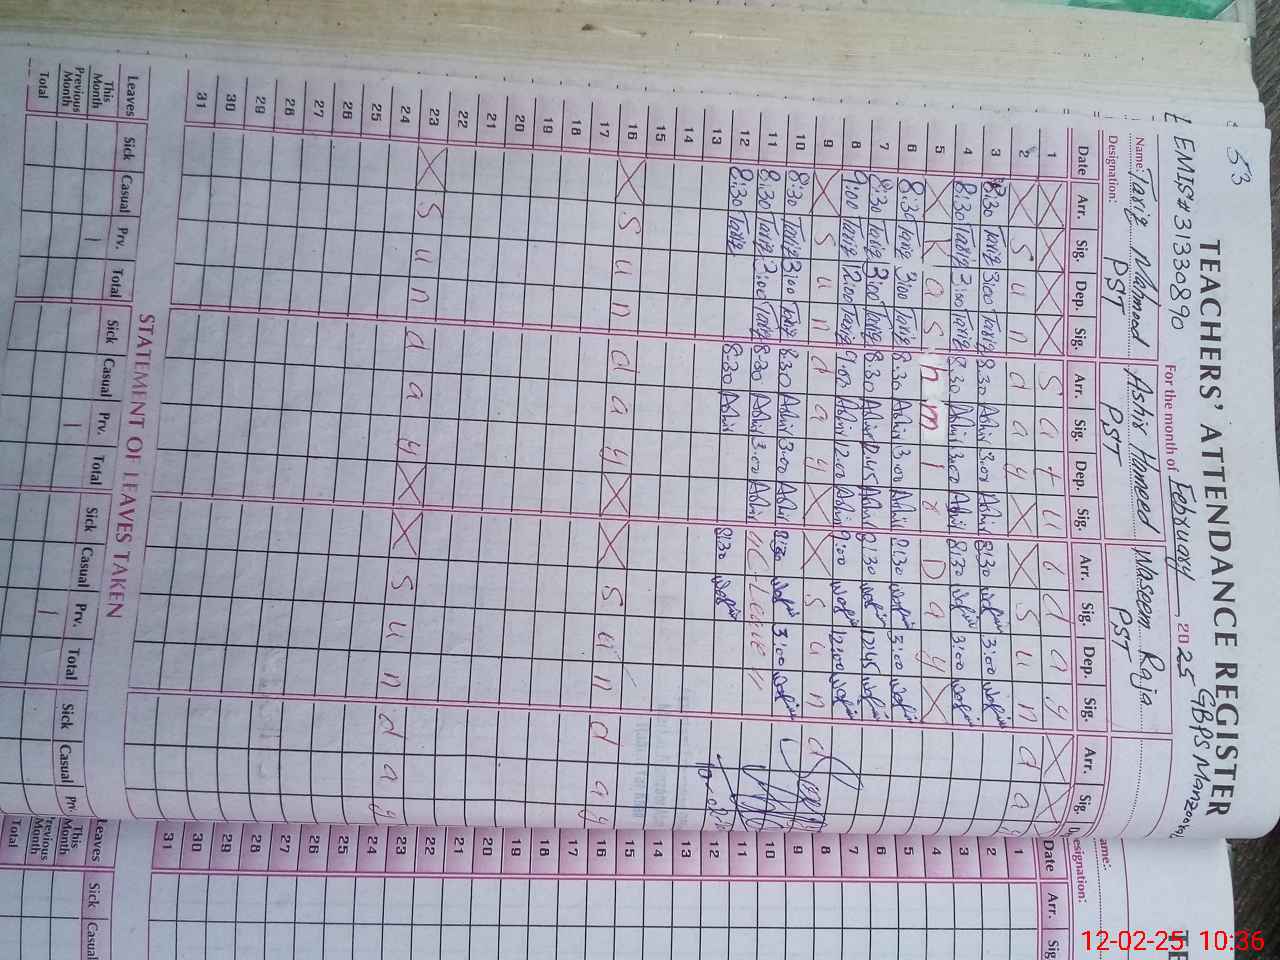 53
TEACHERS' ATTENDANCE REGISTER
EMIS# 31330890 For the month of February, 2025 GBPS Manzoor
Name: Tariq Mahmood Ashir Hameed Waseem Raja
Designation: PST PST PST
Date Arr. Sig. Dep. Sig. Arr. Sig. Dep. Sig. Arr. Sig. Dep. Sig. Arr. Sig.
1 Saturday
2 Sunday Sunday
3 8:30 Tariq 3:00 Tariq 8:30 Ashir 3:00 Ashir 8:30 3:00
4 8:30 Tariq 3:00 Tariq 8:30 Ashir 3:00 Ashir 8:30 3:00
5 Kashmir Day
6 8:30 Tariq 3:00 Tariq 8:30 Ashir 3:00 Ashir 8:30 3:00
7 8:30 Tariq 3:00 Tariq 8:30 Ashir 12:45 Ashir 8:30 12:45
8 9:00 Tariq 12:00 Tariq 9:00 Ashir 12:00 Ashir 9:00 12:00
9 Sunday Sund
10 8:30 Tariq 3:00 Tariq 8:30 Ashir 3:00 Ashir 8:30 3:00
11 8:30 Tariq 3:00 Tariq 8:30 Ashir 3:00 Ashir "C-Leave"
12 8:30 Tariq 8:30 Ashir 8:30
13
14
15
16 Sunday Sunday
17
18
19
20
21
22
23 Sunday Sunday
24
25
26
27
28
29
30
31
STATEMENT OF LEAVES TAKEN
Leaves Sick Casual Prv. Total Sick Casual Prv. Total Sick Casual Prv. Total Sick Casual Prv
This Month
Previous Month
Total
TE
ame:-
esignation:
Date Arr. Sig
1
2
3
4
5
6
7
8
9
10
11
12
13
14
15
16
17
18
19
20
21
22
23
24
25
26
27
28
29
30
31
Leaves Sick Casual
This Month
Previous Month
Total
12-02-25 10:36